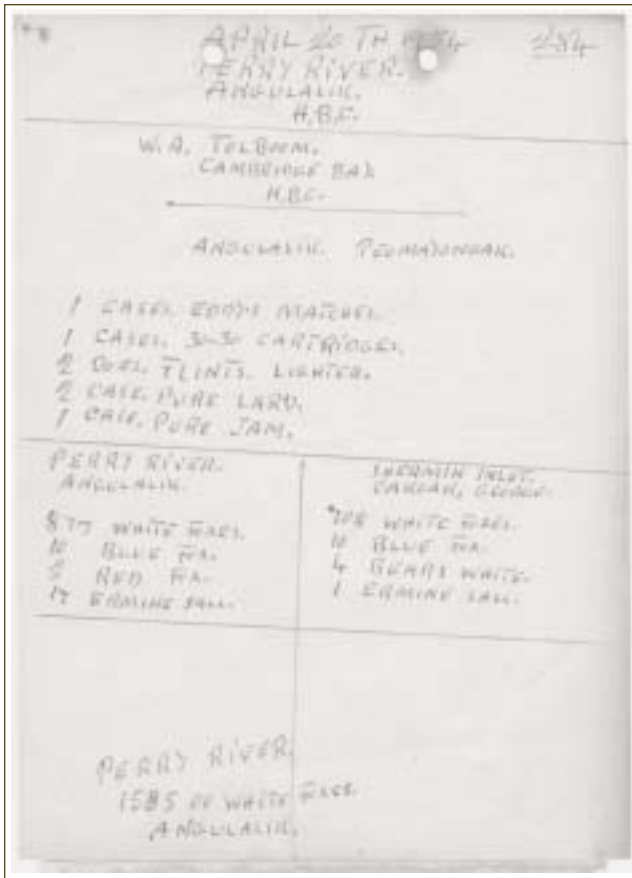 APRIL 20 TH
PERRY RIVER.
ANGULALIK.
H.B.C.
W.A. TOLBOOM.
CAMBRIDGE BAY.
H.B.C.
ANGULALIK.
1 CASES. EDDYS MATCHES.
1 CASES. 30-30 CARTRIDGES.
2 FLINTS. LIGHTER.
2 CASE. PURE LARD.
1 CASE. PURE JAM.
PERRY RIVER.
ANGULALIK.
877 WHITE FOXES.
10 BLUE FOX.
RED FOX.
ERMINE
SHERMIN INLET.
GEORGE.
708 WHITE FOXES.
10 BLUE FOX.
4 BEARS WHITE.
1 ERMINE
PERRY RIVER.
1585 OF WHITE FOXES.
ANGULALIK.